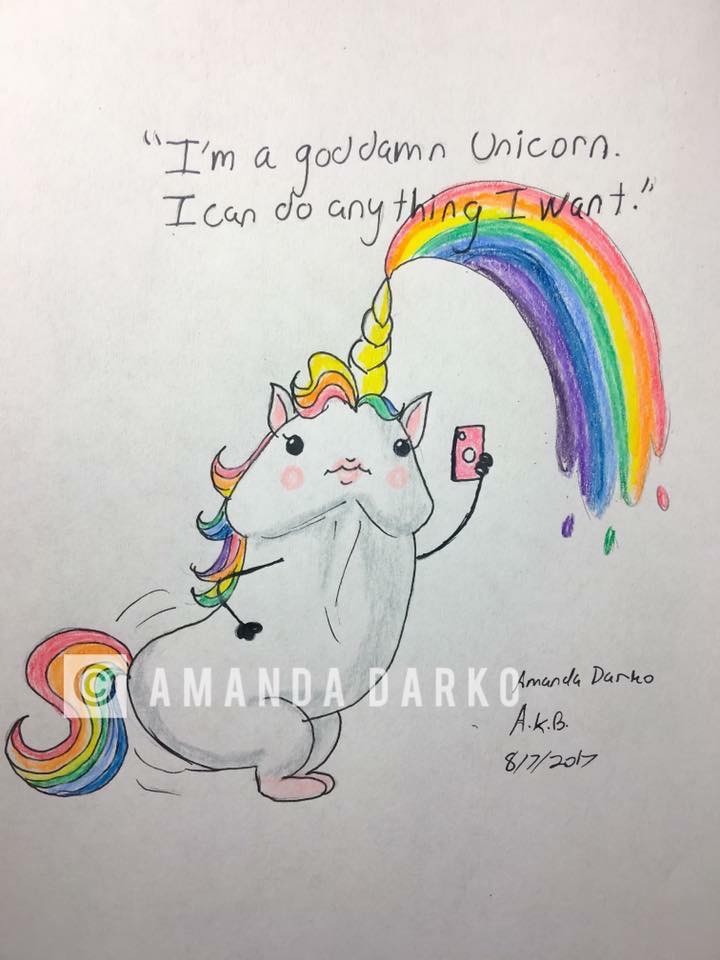 "I'm a goddamn Unicorn.
I can do anything I want."
© AMANDA DARKO
Amanda Darko
A.K.B.
8/7/2017